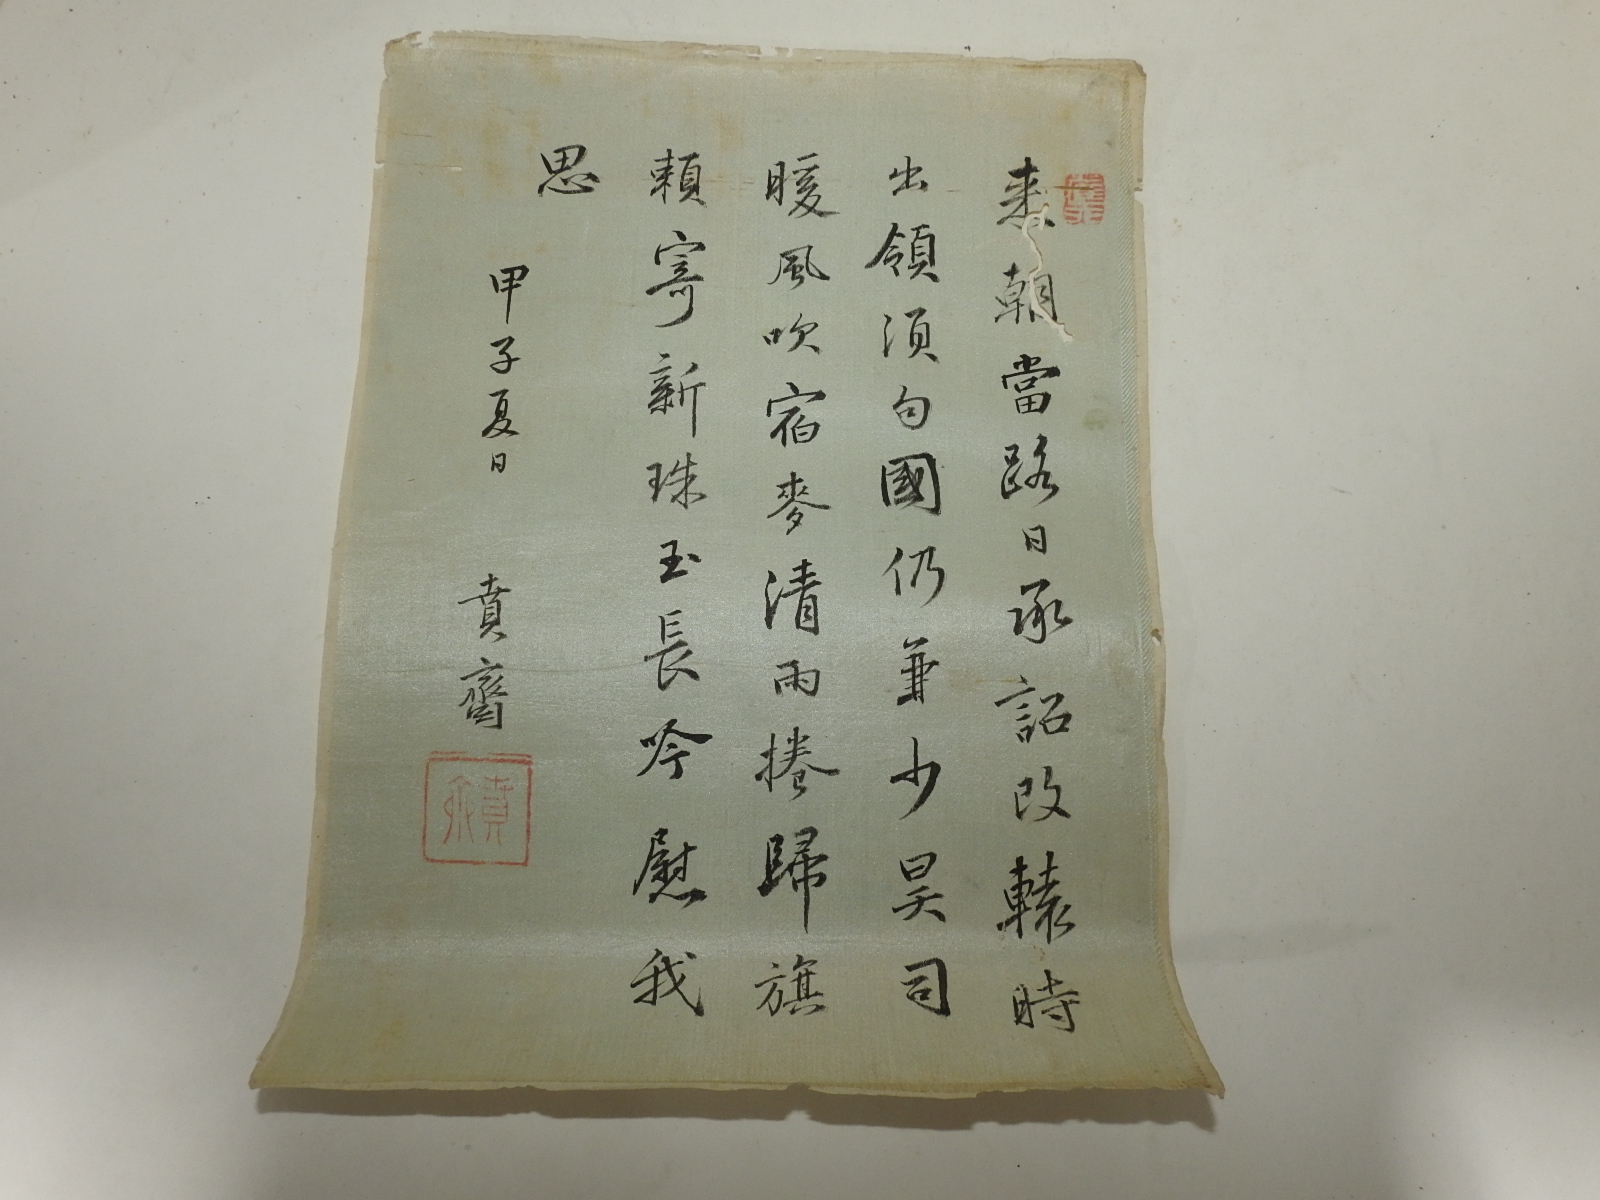 来朝當路日承詔改轅時
出領須句國仍兼少昊司
暖風吹宿麥清雨捲歸旗
賴寄新珠玉長吟慰我
思
甲子夏日
賁齋
賁齋